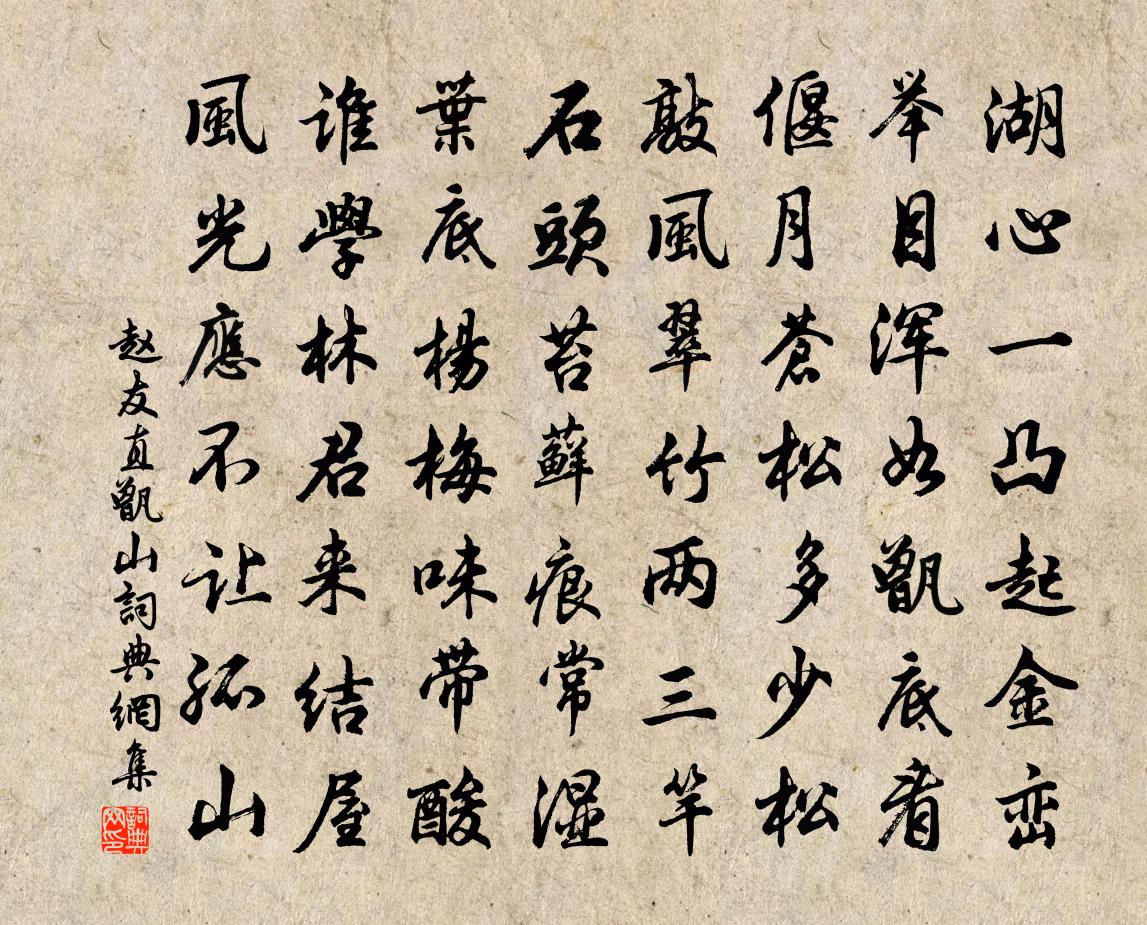 湖心一凸起金峦
举目浑如甑底看
偃月苍松多少松
敲風翠竹两三竿
石頭苔蘚痕常濕
葉底楊梅味带酸
誰學林君来结屋
風光應不让孤山
赵友直甑山詞典網集
詞典网印